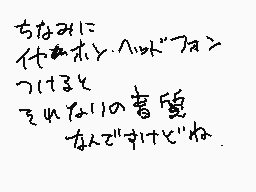 ちなみに
イヤホン・ヘッドフォン
つけると
それなりの音質
なんですけどね.